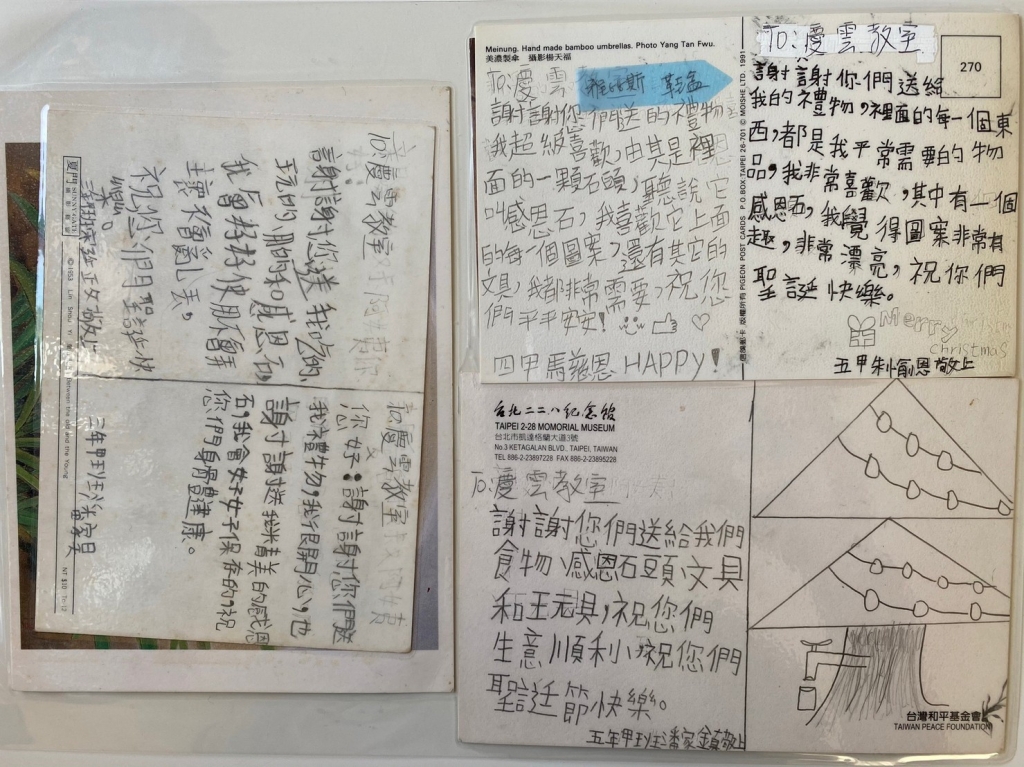 Meinung. Hand made bamboo umbrellas. Photo Yang Tan Fwu.
美濃製傘 攝影楊天福
To:慶雲
謝謝您們送的禮物
我超級喜歡,由其是裡
面的一顆石頭,聽說它
叫感恩石,我喜歡它上面
的每一個圖案,還有其它的
文具,我都非常需要,祝您
們平平安安!
四甲馬菈恩 HAPPY!
版權所有 PIGEON POST CARDS P.O.BOX TAIPEI 26-701 © MOISHE LTD. 1991
To:慶雲教室
270
謝謝你們送給
我的禮物,裡面的每一個東
西,都是我平常需要的物
品,我非常喜歡,其中有一個
感恩石,我覺得圖案非常有
趣,非常漂亮,祝你們
聖誕快樂。
Merry
christmas
五甲朱俞恩敬上
To慶雲教室
謝謝你送我吃的、
玩的、用的和感恩石,
我會好好使用不會弄
壞
祝您們聖誕快
樂。
敬上
夏門 SUNNYGATE
©1953 Lin
Between the old and the Young
NT $10
To慶雲教室
您好:謝謝你們送
我禮物,我很開心,也
謝謝送我精美的感恩
石,我會好好保存的,祝
你們身體健康。
三年甲班
台北二二八紀念館
TAIPEI 2-28 MOMORIAL MUSEUM
台北市凱達格蘭大道3號
No.3 KETAGALAN BLVD., TAIPEI, TAIWAN
TEL 886-2-23897228 FAX 886-2-23895228
To:慶雲教室
謝謝您們送給我們
食物、感恩石頭、文具
和玩具,祝您們
生意順利、祝您們
聖誕節快樂。
五年甲班潘家鎮敬上
台灣和平基金會
TAIWAN PEACE FOUNDATION